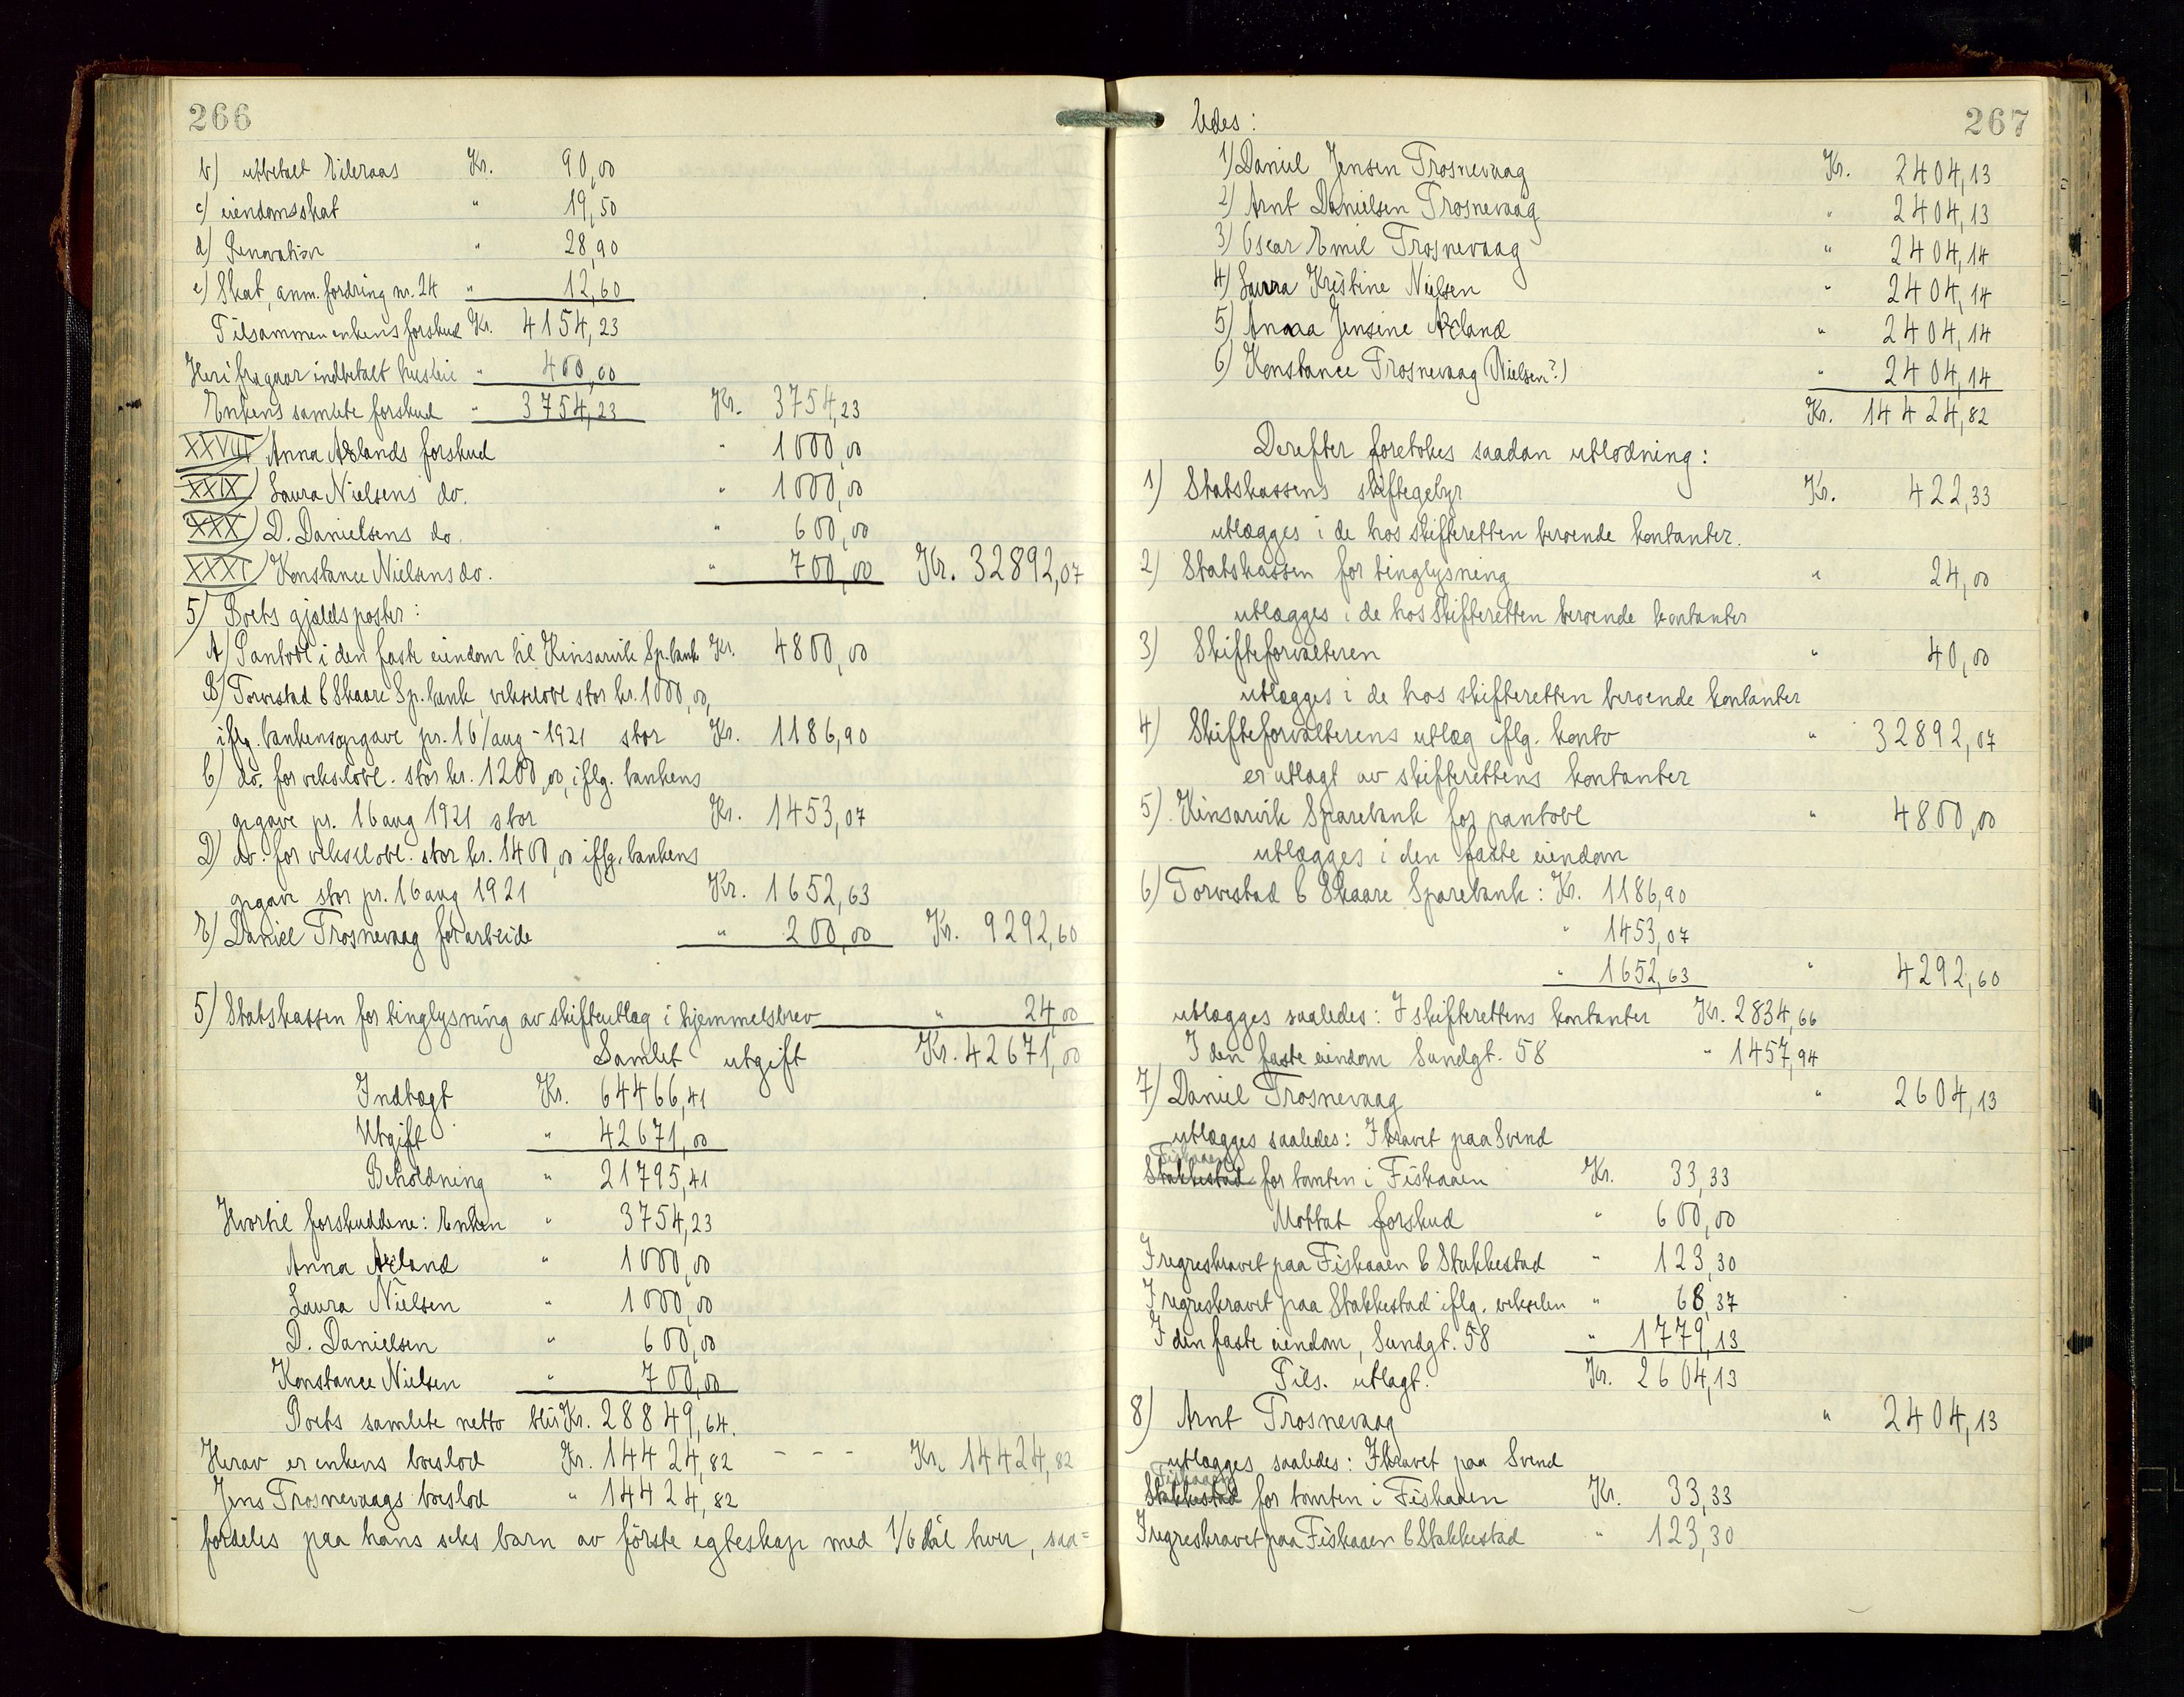 266
b) utbetalt Eileraas Kr. 90,00
c) eiendomsskat " 19,50
d) Renovation " 28,90
e) Skat, anm. fordring nr. 24 " 12,60
Tilsammen enkens forskud Kr. 4154,23
Heri fragaar indbetalt husleie " 400,00
Enkens samlete forskud " 3754,23 Kr. 3754,23
XXVIII) Anna Axlands forskud " 1000,00
XXIX) Laura Nielsens do. " 1000,00
XXX) D. Danielsens do. " 600,00
XXXI) Konstance Nielsens do. " 700,00 Kr. 32892,07
5) Boets gjældsposter:
A) Pantobl i den faste eiendom til Kinsarvik Sp.bank Kr. 4800,00
B) Torvestad & Skaare Sp.bank, vekselobl stor kr. 1000,00,
iflg. bankens opgave pr. 16/aug - 1921 stor Kr. 1186,90
C) do. for vekselobl. stor kr. 1200,00, iflg. bankens
opgave pr. 16 aug 1921 stor Kr. 1453,07
D) do. for vekselobl. stor kr. 1400,00 iflg. bankens
opgave stor pr. 16 aug 1921 Kr. 1652,63
E) Daniel Trosnevaag for arbeide " 200,00 Kr. 9292,60
5) Statskassen for tinglysning av skifteutlæg i hjemmelsbrev " 24,00
Samlet utgift Kr. 42671,00
Indtægt Kr. 64466,41
Utgift " 42671,00
Beholdning " 21795,41
Hvortil forskuddene: Enken " 3754,23
Anna Axland " 1000,00
Laura Nielsen " 1000,00
D. Danielsen " 600,00
Konstance Nielsen " 700,00
Boets samlete netto blir Kr. 28849,64.
Herav er enkens boeslod Kr. 14424,82 - - - Kr. 14424,82
Jens Trosnevaags boeslod " 14424,82
fordeles paa hans seks barn av første egteskap med 1/6 del hver, saa=
267
ledes:
1) Daniel Jensen Trosnevaag Kr. 2404,13
2) Arnt Danielsen Trosnevaag " 2404,13
3) Oscar Emil Trosnevaag " 2404,14
4) Laura Kristine Nielsen " 2404,14
5) Anna Jensine Axland " 2404,14
6) Konstance Trosnevaag (Nielsen?) " 2404,14
Kr. 14424,82
Derefter foretokes saadan utlodning:
1) Statskassens skiftegebyr Kr. 422,33
utlægges i de hos skifteretten beroende kontanter.
2) Statskassen for tinglysning " 24,00
utlægges i de hos skifteretten beroende kontanter
3) Skifteforvalteren " 40,00
utlægges i de hos skifteretten beroende kontanter
4) Skifteforvalterens utlæg iflg. konto " 32892,07
er utlagt av skifterettens kontanter
5). Kinsarvik Sparebank for pantobl " 4800,00
utlægges i den faste eiendom
6) Torvestad & Skaare Sparebank: Kr. 1186,90
" 1453,07
" 1652,63 " 4292,60
utlægges saaledes: I skifterettens kontanter Kr. 2834,66
I den faste eiendom Sundgt. 58 " 1457,94
7) Daniel Trosnevaag " 2604,13
utlægges saaledes: I kravet paa Svend
Fiskaaen
Stakkestad for tomten i Fiskaaen Kr. 33,33
Mottat forskud " 600,00
I regreskravet paa Fiskaaen & Stakkestad " 123,30
I regreskravet paa Stakkestad iflg. vekselen " 68,37
I den faste eiendom, Sundgt. 58 " 1779,13
Tils. utlagt. Kr. 2604,13
8) Arnt Trosnevaag " 2404,13
utlægges saaledes: I kravet paa Svend
Fiskaaen
Stakkestad for tomten i Fiskaaen Kr. 33,33
I regreskravet paa Fiskaaen & Stakkestad " 123,30